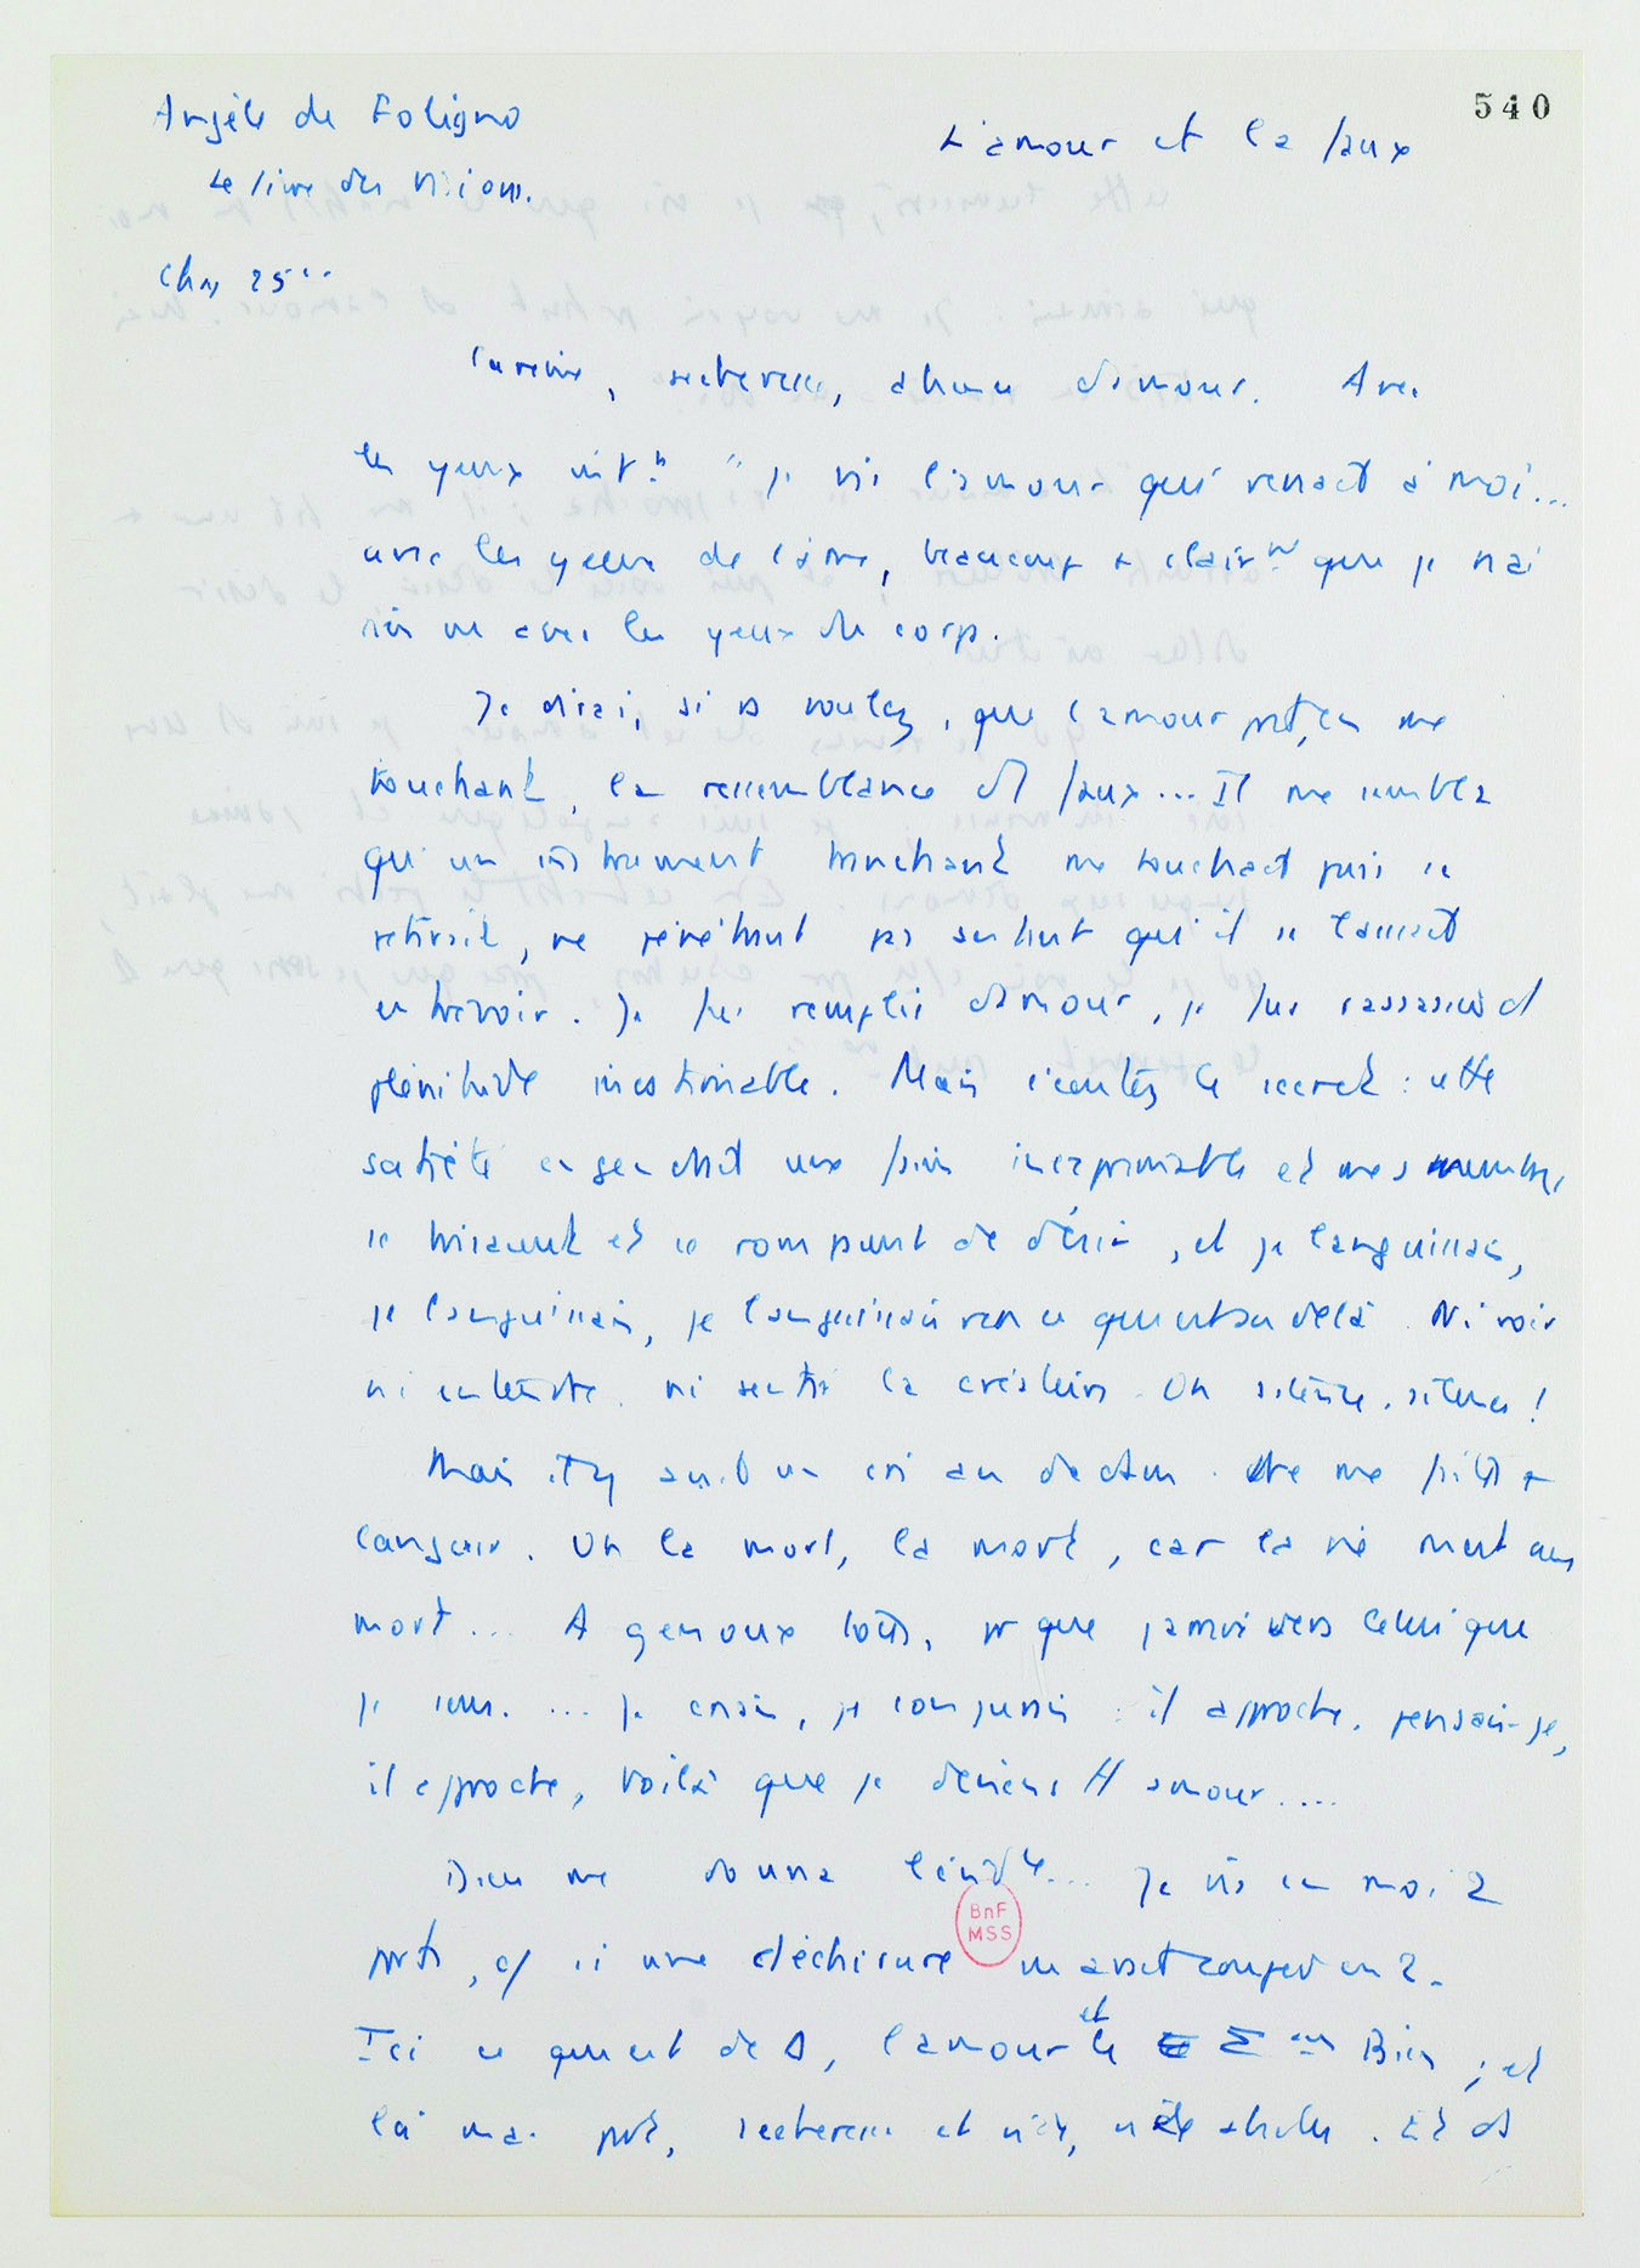 540
Angèle de Foligno
L'amour et la faux
Le livre des visions.
Chap 25
Carême, sécheresse, absence d'amour. Avec
les yeux int. " je vis l'amour qui venait à moi...
avec les yeux de l'âme, beaucoup + clair que je n'ai
rien vu avec les yeux du corps.
Je dirai, si vs voulez, que l'amour prit, en me
touchant, la ressemblance d'1 faux... Il me sembla
qu'un instrument tranchant me touchait puis se
retirait, ne pénétrant pas autant qu'il se laissait
entrevoir. Je fus remplie d'amour, je fus rassasiée d'
plénitude inestimable. Mais écoutez le secret : cette
satiété engendrait une faim inexprimable et mes membres
se brisaient et se rompaient de désir, et je languissais,
je languissais, je languissais vers ce qui est au delà. Ni voir
ni entendre, ni sentir la créature. Oh silence, silence !
Mais il y avait un cri au dedans. Ne me faites +
languir. Oh la mort, la mort, car la vie m'est une
mort... A genoux pr que j'arrive vers celui que
je sens. ... Je criais, je conjurais : il approche, pensais-je,
il approche, voilà que je deviens tt amour....
Dieu me donna Je vis en moi 2
parts, c/ si une déchirure m'avait coupée en 2.
Ici ce qui est de D, l'amour et le Bien ; et
là ma part, sécheresse et Et ds